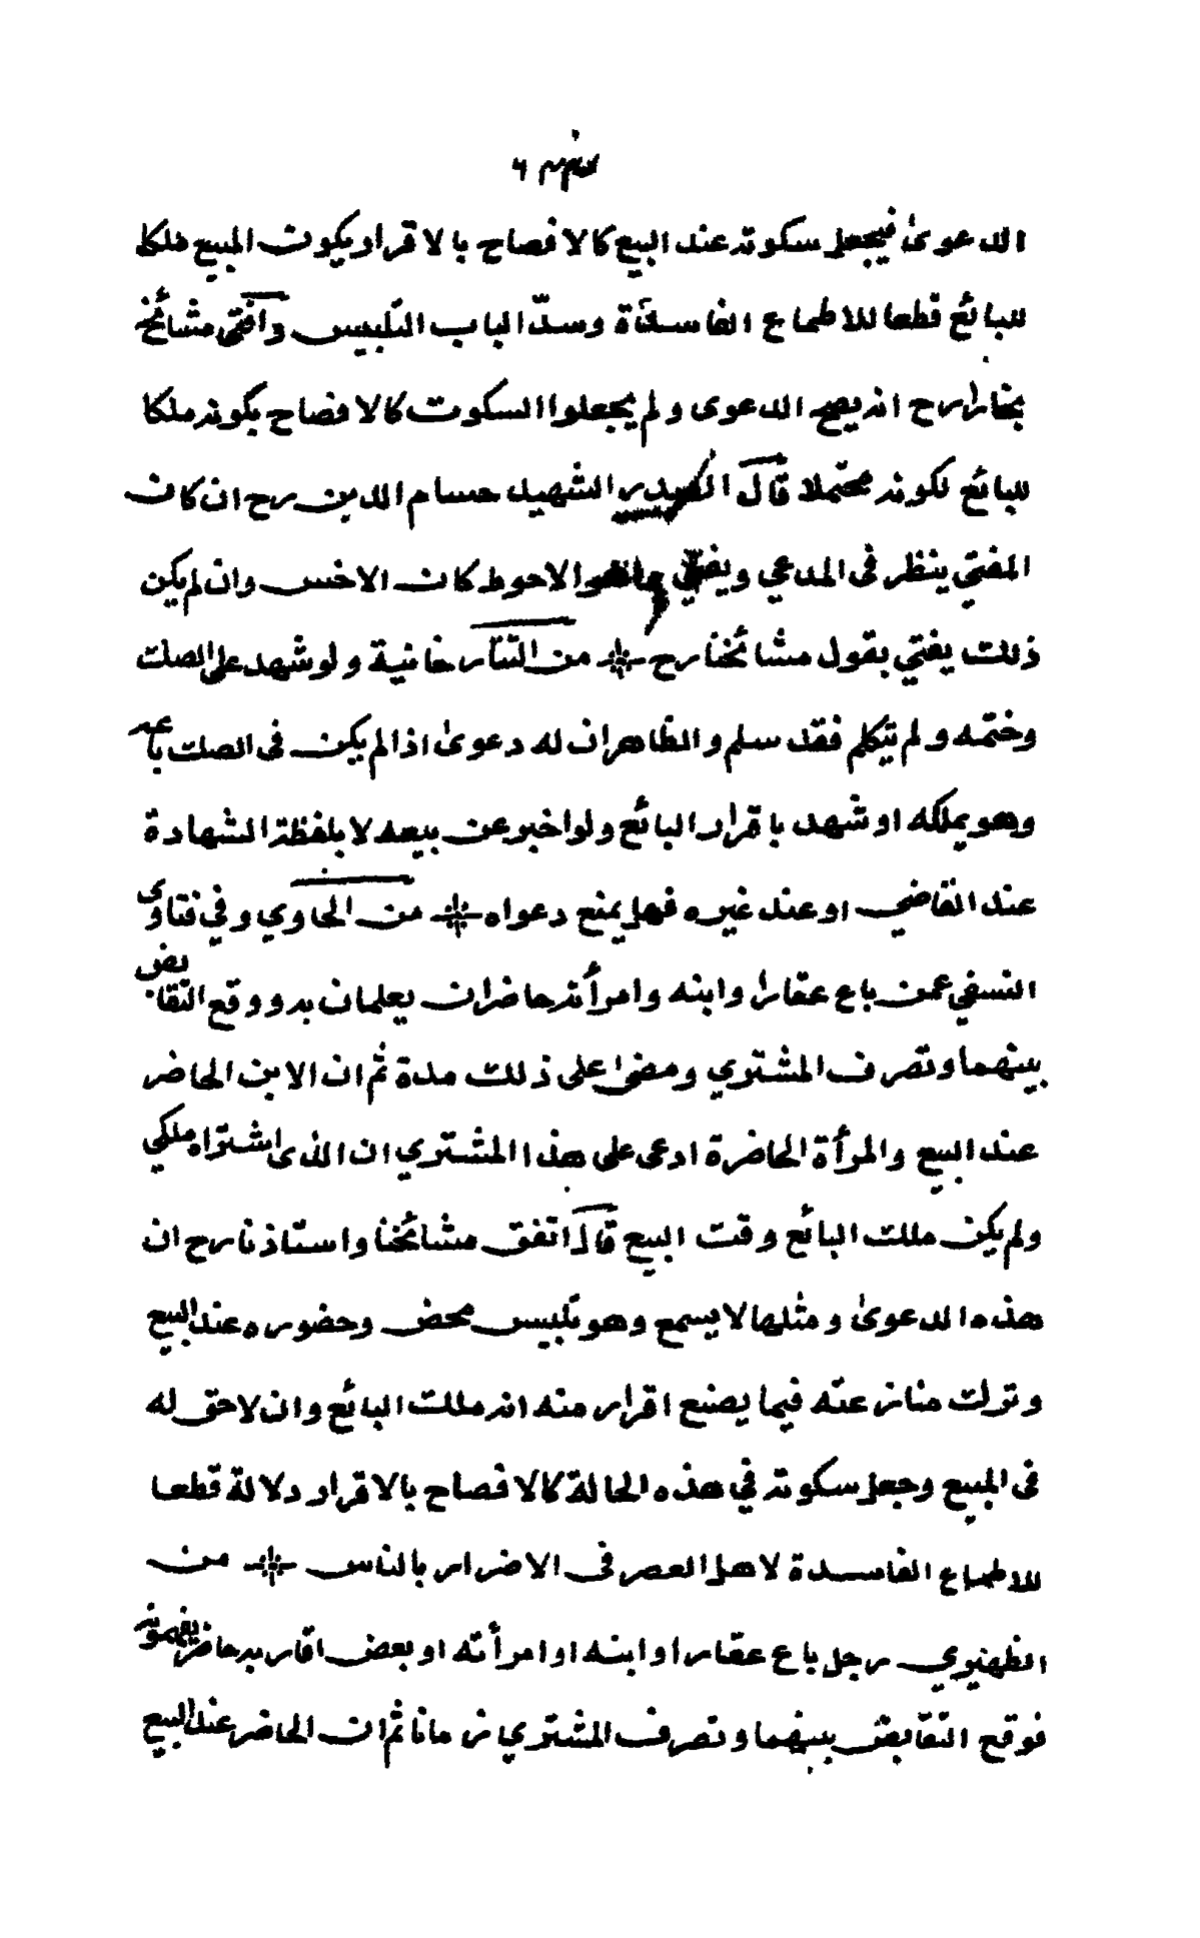 الدعوىٰ فيجعل سكوته عند البيع كالافصاح بالاقرار يكون المبيع ملكا
للبائع قطعا للاطماع الفاسدة وسدّ الباب التلبيس وافتى مشائخ
بخارا رح انه يصح الدعوى ولم يجعلوا السكوت كالافصاح بكونه ملكا
للبائع لكونه محتملا قال الصدر الشهيد حسام الدين رح ان كان
المفتي ينظر فى المدعي ويفتي بما هو الاحوط كان الاحسن وان لم يكن
ذلك يفتي بقول مشائخنا رح من التتارخانية ولو شهد على الصك
وختمه ولم يتكلم فقد سلم والظاهر ان له دعوىٰ اذا لم يكن فى الصك باعه
وهو يملكه او شهد باقرار البائع ولو اخبر عن بيعه لا بلفظة الشهادة
عند القاضي او عند غيره فهل يمنع دعواه من الحاوي وفي فتاوى
النسفي عمن باع عقارا وابنه وامرأته حاضران يعلمان به ووقع التقابض
بينهما وتصرف المشتري ومضىٰ على ذلك مدة ثم ان الابن الحاضر
عند البيع والمرأة الحاضرة ادعى على هذا المشتري ان الذى اشتراه ملكي
ولم يكن ملك البائع وقت البيع قال اتفق مشائخنا واستاذنا رح ان
هذه الدعوىٰ ومثلها لا يسمع وهو تلبيس محض وحضوره عند البيع
وترك منازعته فيما يصنع اقرار منه انه ملك البائع وان لا حق له
فى المبيع وجعل سكوته في هذه الحالة كالافصاح بالاقرار دلالة قطعا
للاطماع الفاسدة لاهل العصر فى الاضرار بالناس من
الظهيري رجل باع عقارا وابنه او امرأته او بعض اقاربه حاضر
فوقع التقابض بينهما وتصرف المشتري زمانا ثم ان الحاضر عند البيع